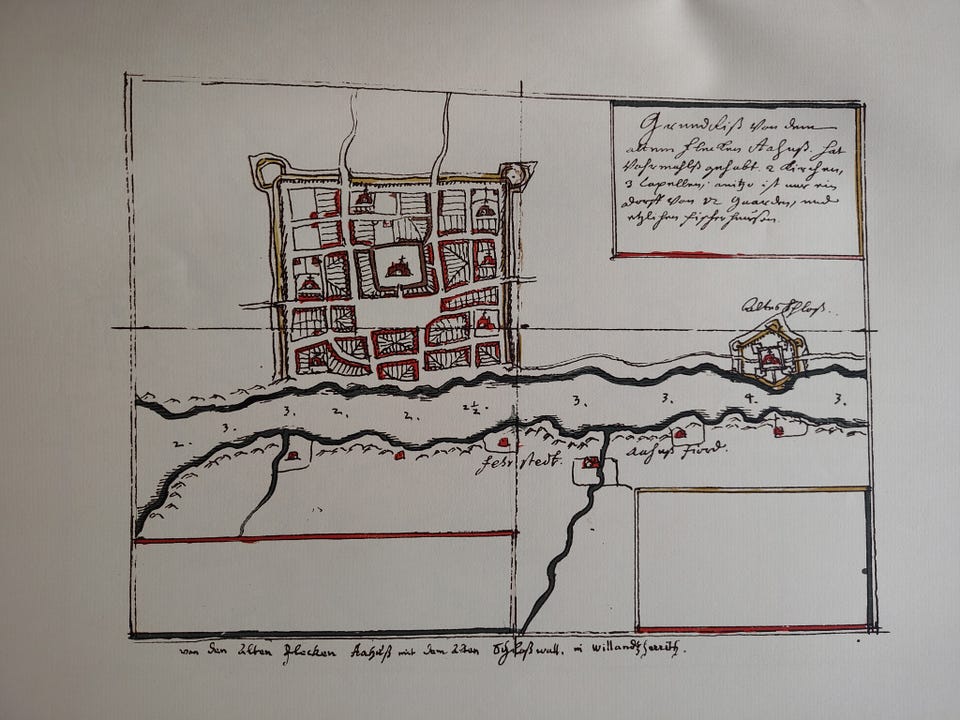 Grundriß von dem
altem flecken Aahuß. hat
Vohrmahlß gehabt. 2 Kirchen,
3 Capellen, anitzo ist nur ein
dorff von 12 Gaarden, undt
etzlichen fischer heußen.
Altes Schloß.
3. 2. 2. 2½. 3. 3. 4. 3.
2. 3.
fehr stedt.
Aahuß fiord.
von den Alten flecken Aahuß mit dem Alten Schloßwall, in Willandtz herrith.